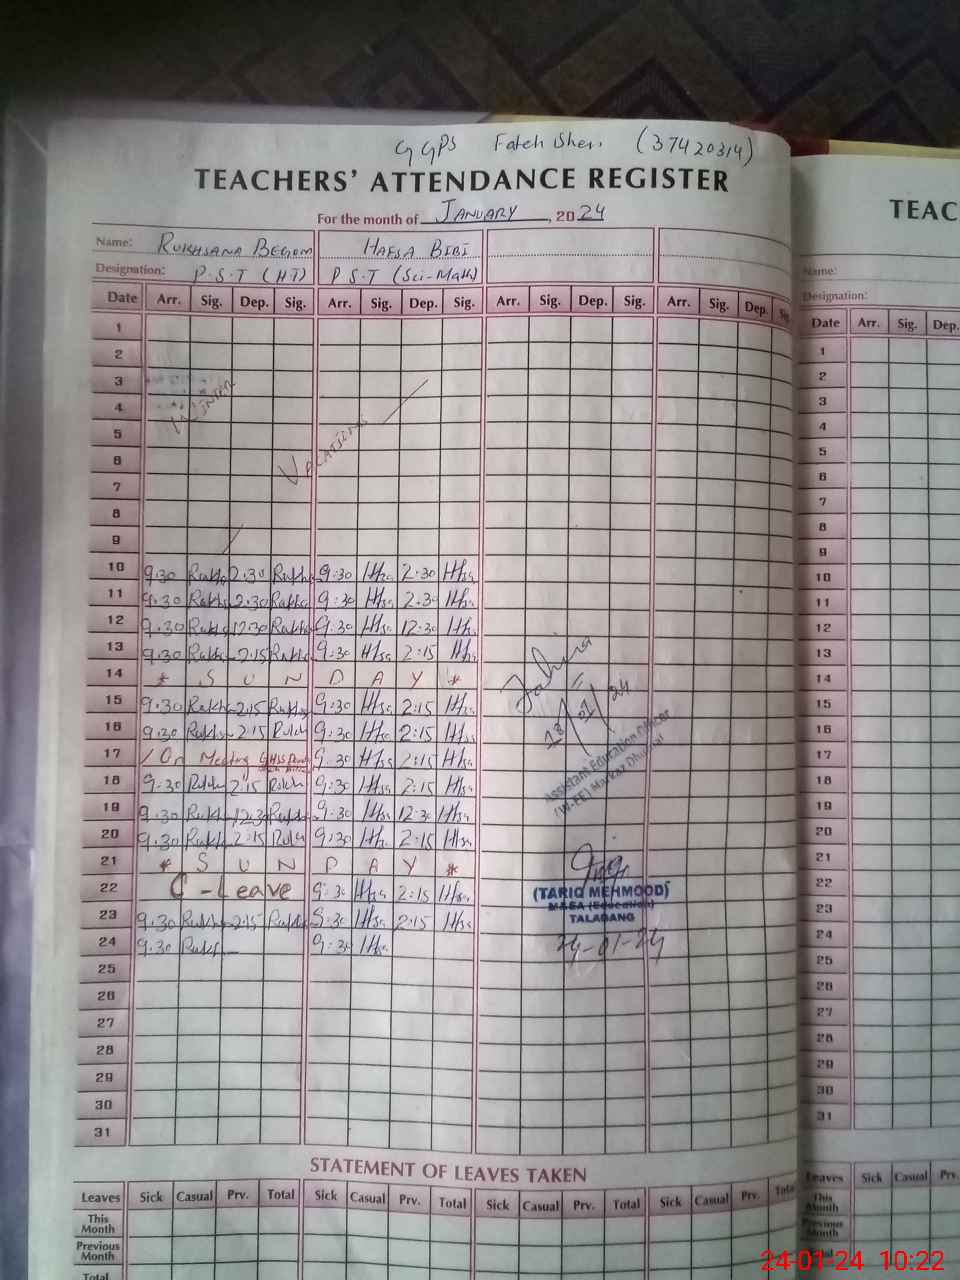 G GPS Fateh Sher. (37420314)
TEACHERS' ATTENDANCE REGISTER
For the month of JANUARY, 2024
Name: RUKHSANA BEGUM HAFSA BIBI
Designation: P.S.T (HT) P.S.T (Sci-Math)
Date Arr. Sig. Dep. Sig. Arr. Sig. Dep. Sig. Arr. Sig. Dep. Sig. Arr. Sig. Dep. Sig.
1
2
3
4 WINTER
5
6 VACATIONS
7
8
9
10 9.30 2.30 9:30 2:30
11 9.30 2.30 9:30 2.30
12 9.30 12:30 9:30 12:30
13 9.30 2:15 9:30 2:15
14 * S U N D A Y *
15 9.30 2:15 9:30 2:15
16 9.30 2:15 9:30 2:15
17 On Meeting 9:30 2:15
18 9.30 2:15 9:30 2:15
19 9.30 12:30 9:30 12:30
20 9.30 2:15 9:30 2:15
21 * S U N D A Y *
22 C-Leave 9:30 2:15
23 9.30 2:15 9:30 2:15
24 9.30 9:30
25
26
27
28
29
30
31
18/01/24
Assistant Education Officer
(W-EE) Markaz Dhurnal
(TARIQ MEHMOOD)
M&EA (Education)
TALAGANG
24-01-24
STATEMENT OF LEAVES TAKEN
Leaves Sick Casual Prv. Total Sick Casual Prv. Total Sick Casual Prv. Total Sick Casual Prv. Total
This Month
Previous Month
Total
TEAC
Name:
Designation:
Date Arr. Sig. Dep.
1
2
3
4
5
6
7
8
9
10
11
12
13
14
15
16
17
18
19
20
21
22
23
24
25
26
27
28
29
30
31
Leaves Sick Casual Prv.
This Month
Previous Month
Total
24-01-24 10:22